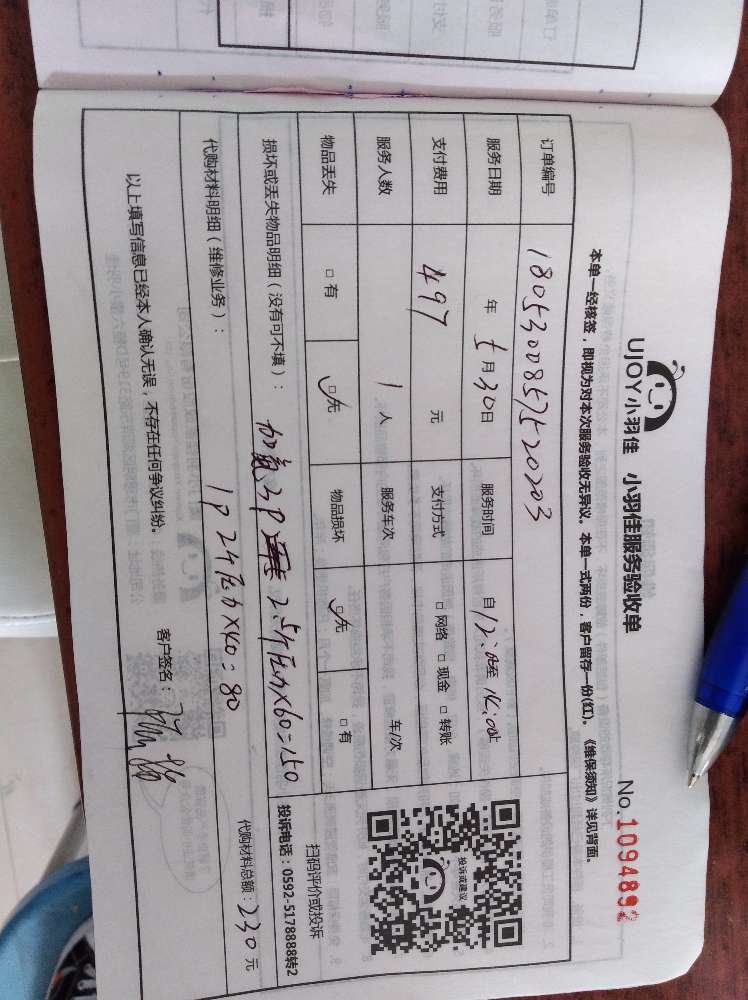 UJOY小羽佳 小羽佳服务验收单 No.1094892
本单一经核签，即视为对本次服务验收无异议。本单一式两份，客户留存一份(红)。《维保须知》详见背面。
订单编号 1805300857520203
服务日期 年 5月30日 服务时间 自12:00至14:00止
支付费用 497 元 支付方式 □网络 □现金 □转账
服务人数 1 人 服务车次 车/次
物品丢失 □有 □无 物品损坏 □无 □有
损坏或丢失物品明细（没有可不填）：
加氟3P 2.5个压力×60=150
代购材料明细（维修业务）：
1P 2个压力×40=80
代购材料总额：230元
以上填写信息已经本人确认无误，不存在任何争议纠纷。
客户签名：
投诉或建议
扫码评价或投诉
投诉电话：0592-5178888转2